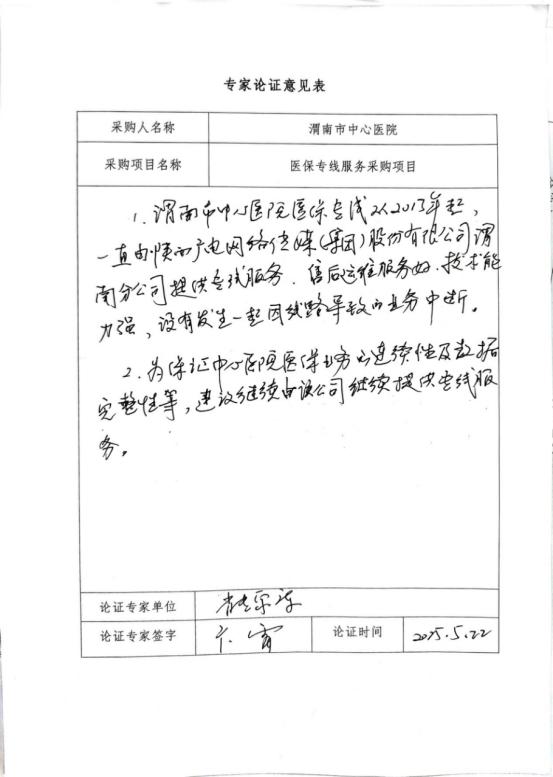 专家论证意见表
采购人名称 渭南市中心医院
采购项目名称 医保专线服务采购项目
1. 渭南市中心医院医保专线从2013年起,
一直由陕西广电网络传媒(集团)股份有限公司渭
南分公司提供专线服务。售后运维服务好、技术能
力强,没有发生一起因线路导致的业务中断。
2. 为保证中心医院医保业务的连续性及数据
完整性等,建议继续由该公司继续提供专线服
务。
论证专家单位
论证专家签字 论证时间 2025.5.22